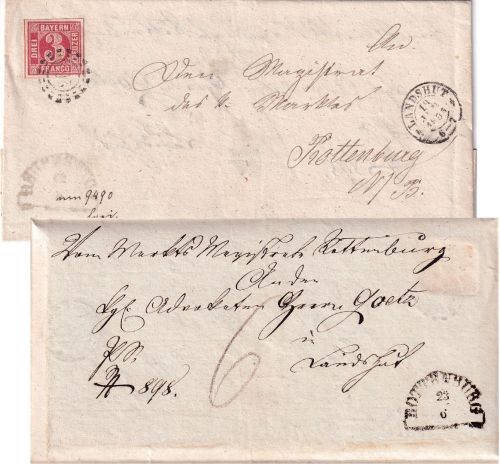 BAYERN
DREI
3
KREUZER
FRANCO
An
Den Magistrat
des k. Marktes
Rottenburg
N/B.
LANDSHUT
Vom Markts Magistrat Rottenburg
An den
Kgl. Advokaten Herrn Goetz
in
Landshut
6
N 898.
ROTTENBURG
23
6.